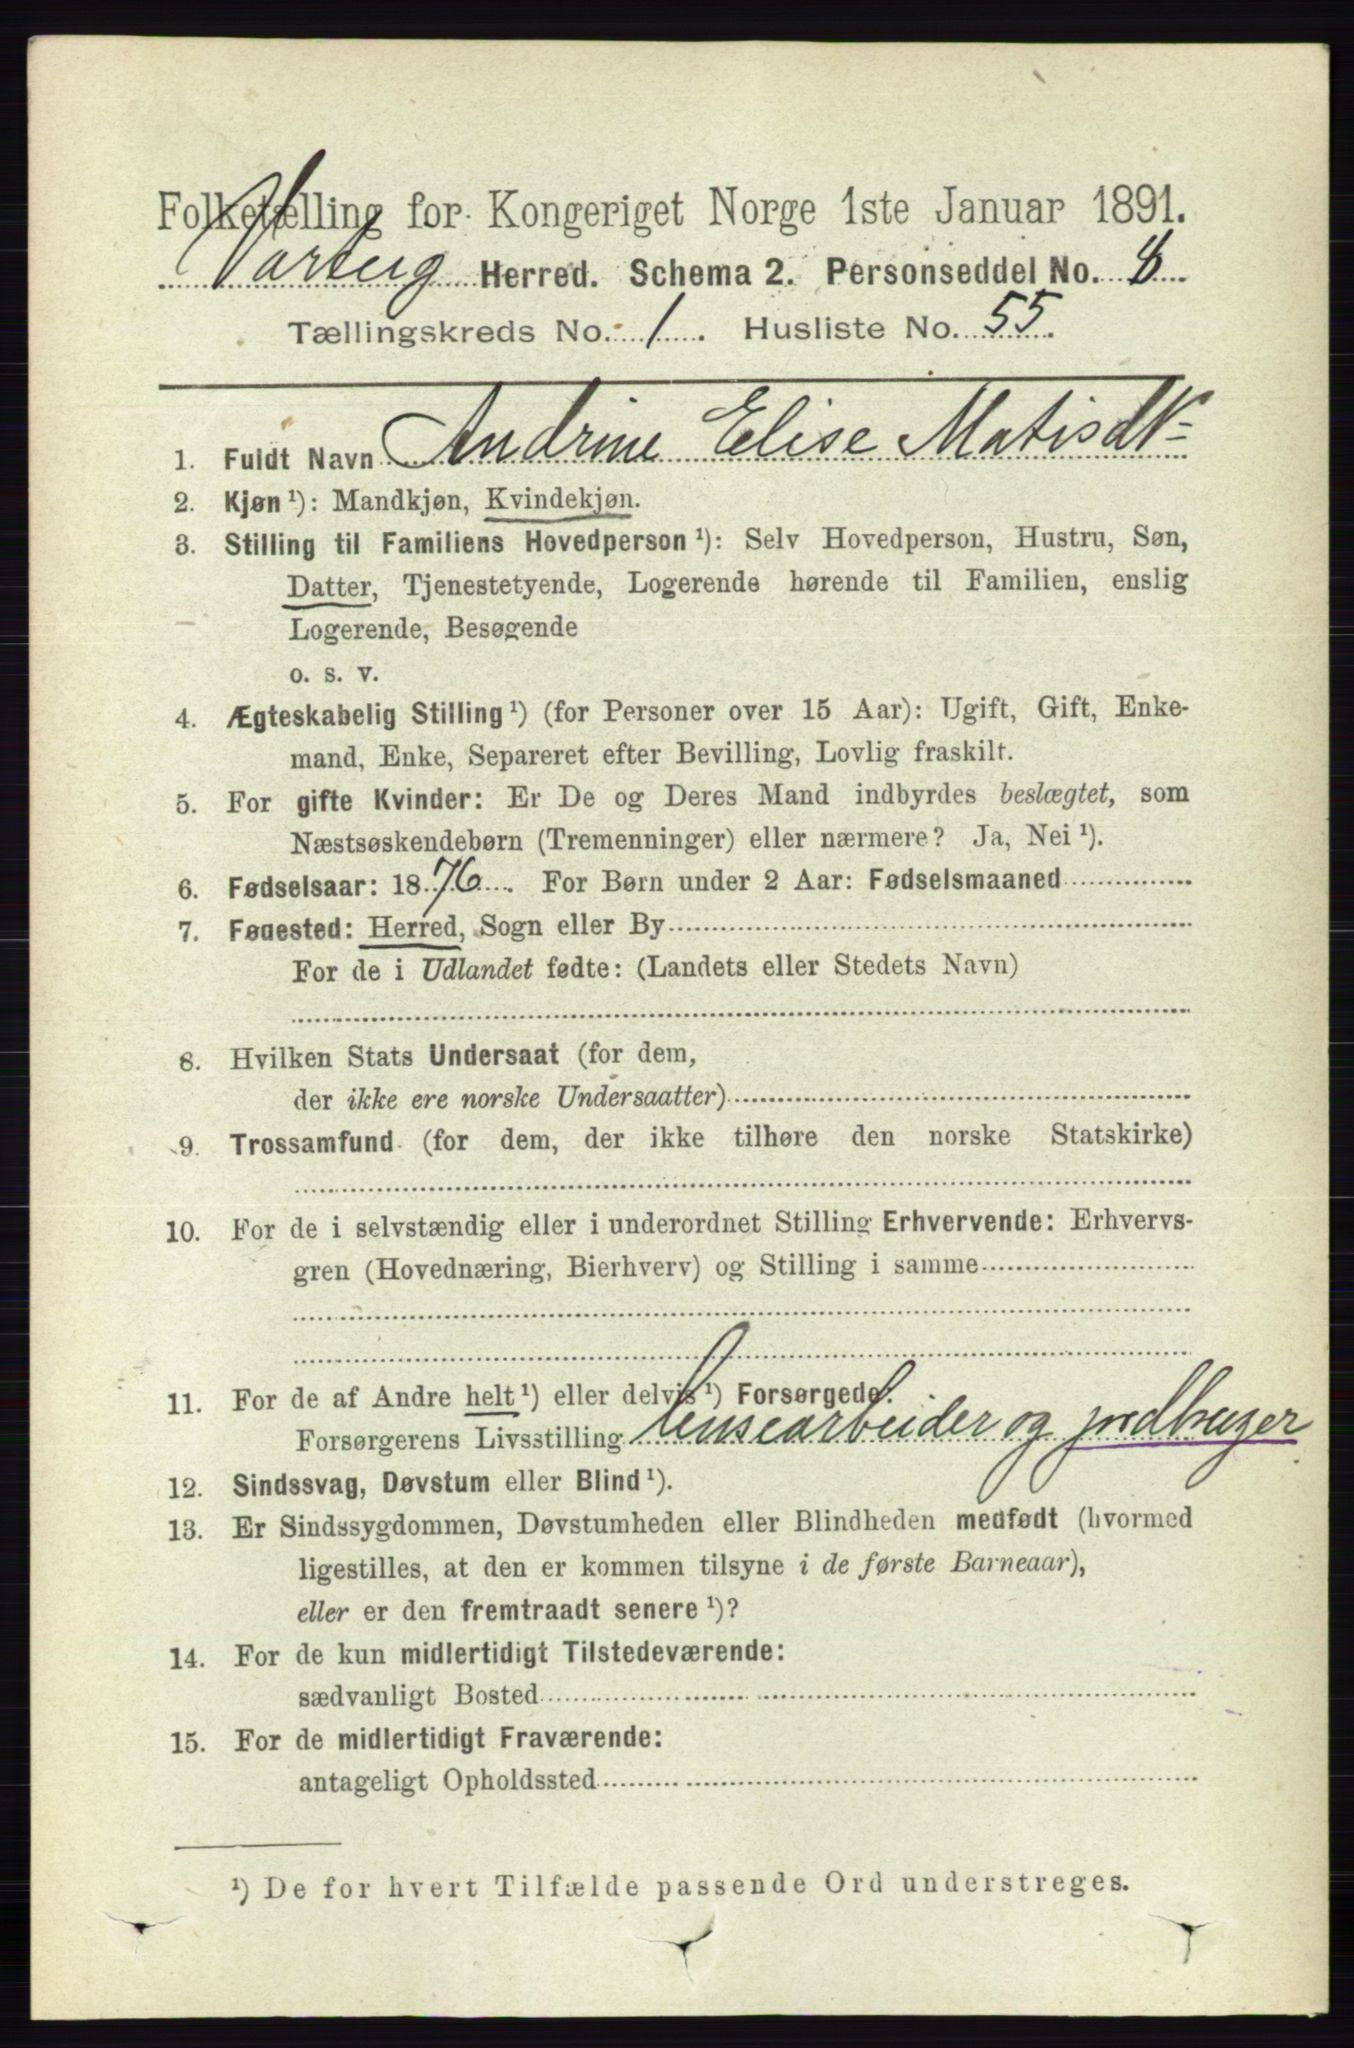 Folketælling for Kongeriget Norge 1ste Januar 1891.
Varteig Herred. Schema 2. Personseddel No. 8
Tællingskreds No. 1. Husliste No. 55.
1. Fuldt Navn Andrine Elise Matisdtr
2. Kjøn ¹): Mandkjøn, Kvindekjøn.
3. Stilling til Familiens Hovedperson ¹): Selv Hovedperson, Hustru, Søn,
Datter, Tjenestetyende, Logerende hørende til Familien, enslig
Logerende, Besøgende
o. s. v.
4. Ægteskabelig Stilling ¹) (for Personer over 15 Aar): Ugift, Gift, Enke-
mand, Enke, Separeret efter Bevilling, Lovlig fraskilt.
5. For gifte Kvinder: Er De og Deres Mand indbyrdes beslægtet, som
Næstsøskendebørn (Tremenninger) eller nærmere? Ja, Nei ¹).
6. Fødselsaar: 1876. For Børn under 2 Aar: Fødselsmaaned
7. Fødested: Herred, Sogn eller By
For de i Udlandet fødte: (Landets eller Stedets Navn)
8. Hvilken Stats Undersaat (for dem,
der ikke ere norske Undersaatter)
9. Trossamfund (for dem, der ikke tilhøre den norske Statskirke)
10. For de i selvstændig eller i underordnet Stilling Erhvervende: Erhvervs-
gren (Hovednæring, Bierhverv) og Stilling i samme
11. For de af Andre helt ¹) eller delvis ¹) Forsørgede:
Forsørgerens Livsstilling lensearbeider og jordbruger
12. Sindssvag, Døvstum eller Blind ¹).
13. Er Sindssygdommen, Døvstumheden eller Blindheden medfødt (hvormed
ligestilles, at den er kommen tilsyne i de første Barneaar),
eller er den fremtraadt senere ¹)?
14. For de kun midlertidigt Tilstedeværende:
sædvanligt Bosted
15. For de midlertidigt Fraværende:
antageligt Opholdssted
¹) De for hvert Tilfælde passende Ord understreges.